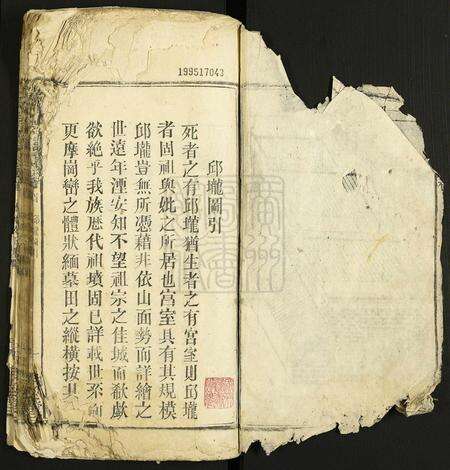 199517043
邱壠圖引
死者之有邱壠猶生者之有宮室則邱壠
者固祖與妣之所居也宮室具有其規模
邱壠豈無所憑藉非依山面勢而詳繪之
世遠年湮安知不望祖宗之佳城而欷歔
欲絕乎我族歷代祖墳固已詳載世系
更摩崗巒之體狀緬墓田之縱橫按其